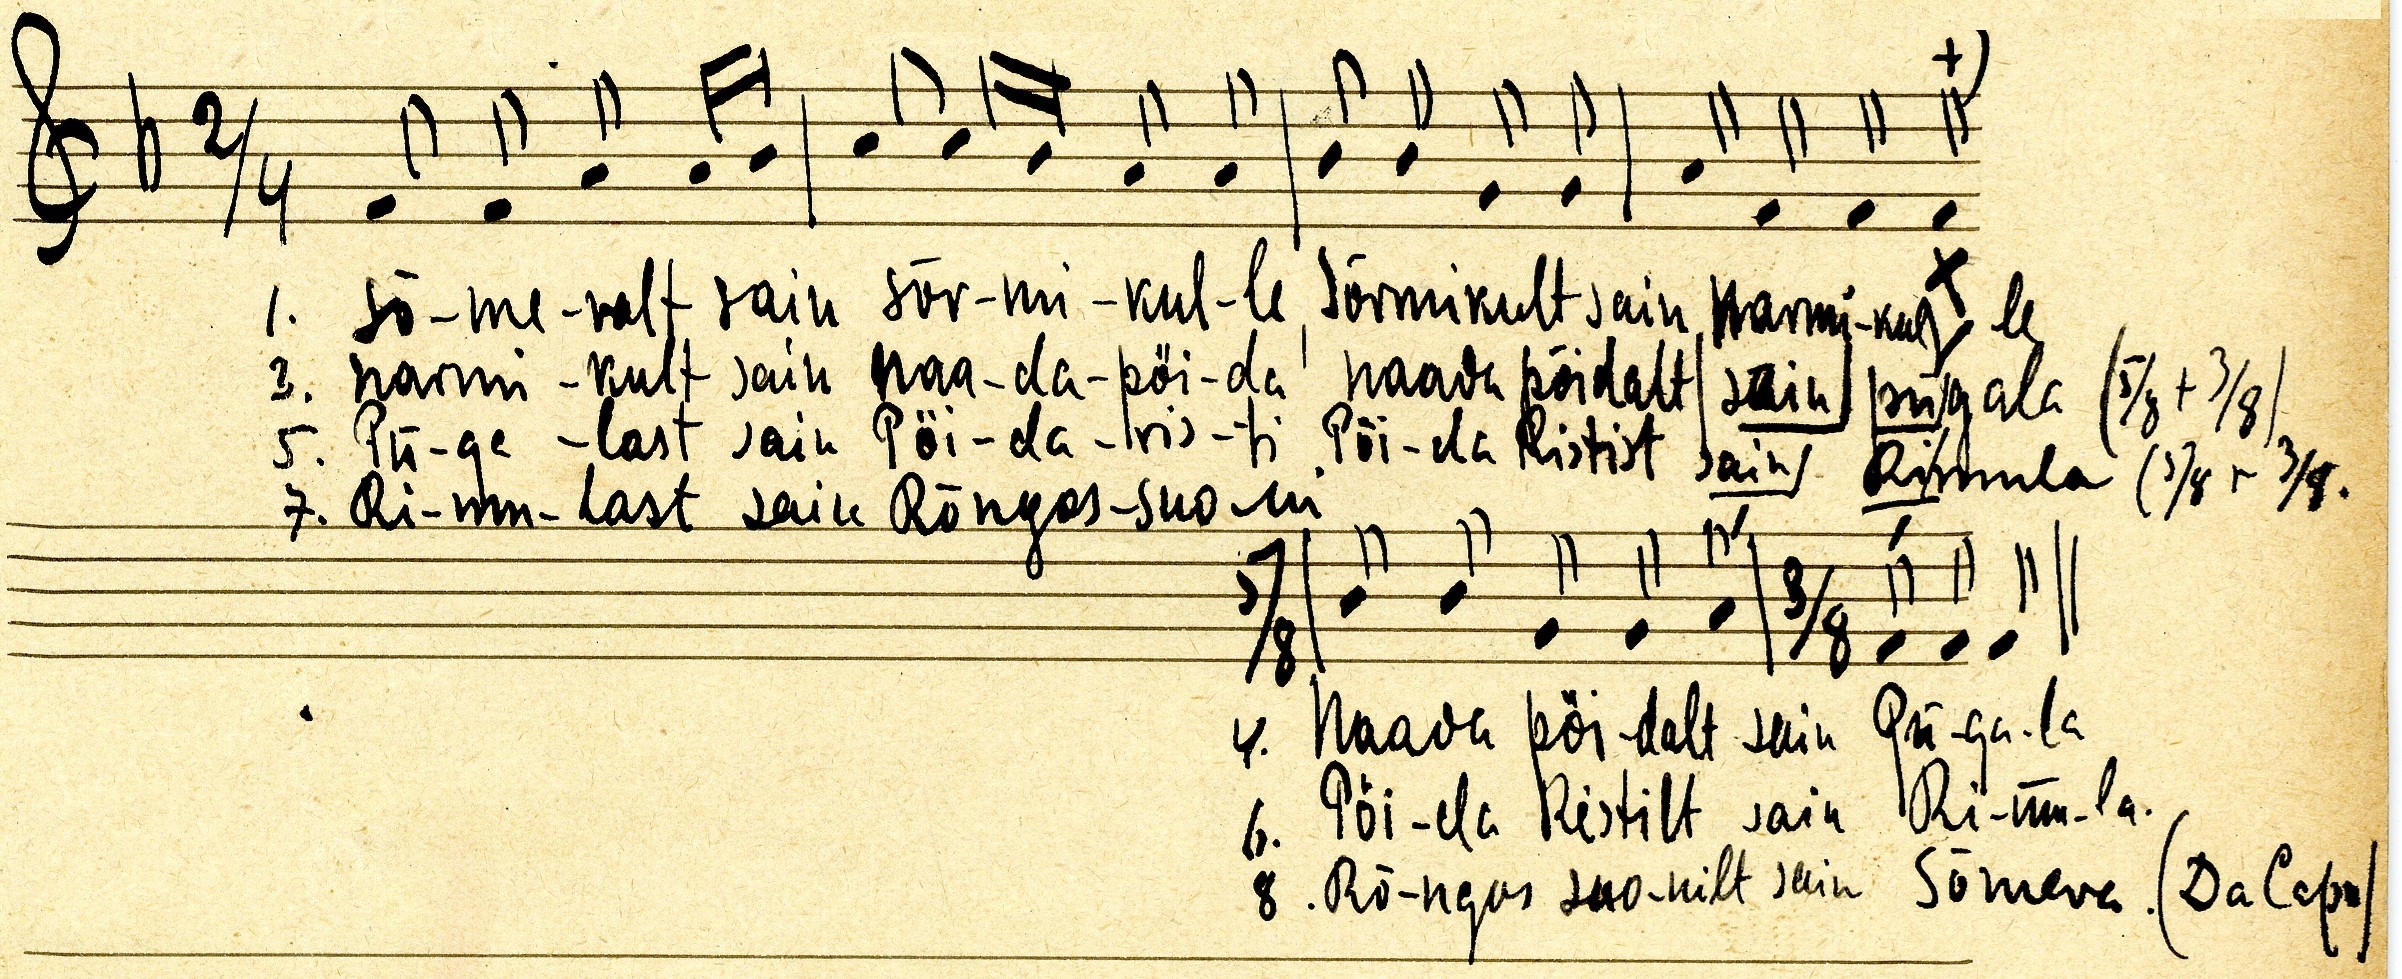 2/4
+
1. Sõ-me-ralt sain Sõr-mi-kul-le, Sõrmikult sain Narmi-kul le
3. Narmi-kult sain Naa-da-pöi-da, Naada pöidalt sain pügala (5/8 + 3/8)
5. Pü-ge-last sain Pöi-da-ris-ti. Pöi-da Ristist sain Rimmla (5/8 + 3/8.
7. Ri-mm-last sain Rõngas-suo-ni
5/8 3/8
4. Naada pöi-dalt sain Pü-ga-la
6. Pöi-da Ristilt sain Ri-mm-la.
8. Rõ-ngas suo-nilt sain Sõmera. (Da Capo)